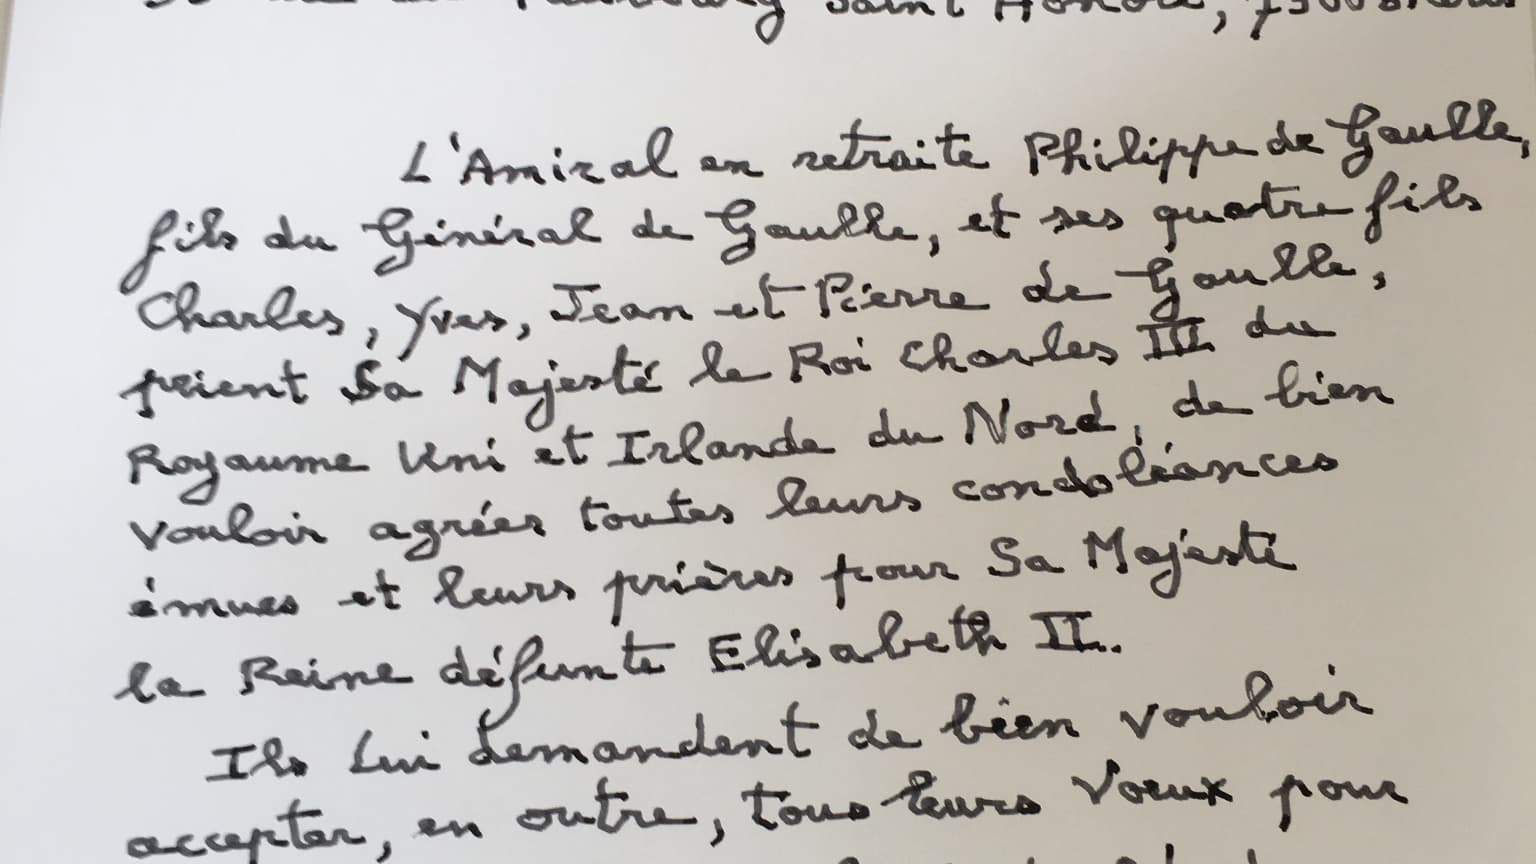 Saint Honoré, 75008
L'Amiral en retraite Philippe de Gaulle,
fils du Général de Gaulle, et ses quatre fils
Charles, Yves, Jean et Pierre de Gaulle,
prient Sa Majesté le Roi Charles III du
Royaume Uni et Irlande du Nord, de bien
vouloir agréer toutes leurs condoléances
émues et leurs prières pour Sa Majesté
la Reine défunte Elisabeth II.
Ils Lui demandent de bien vouloir
accepter, en outre, tous leurs Vœux pour